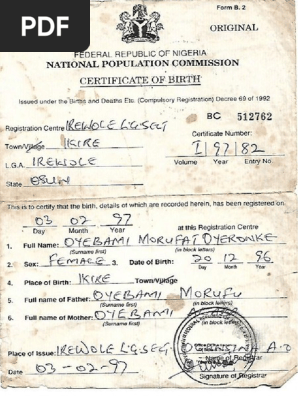 PDF
Form B. 2
ORIGINAL
FEDERAL REPUBLIC OF NIGERIA
NATIONAL POPULATION COMMISSION
CERTIFICATE OF BIRTH
Issued under the Births and Deaths Etc. (Compulsory Registration) Decree 69 of 1992
BC 512762
Registration Centre IREWOLE L.G. SEG
Certificate Number:
Town/Village IKIRE
I 97 82
L.G.A. IREWOLE
Volume Year Entry No
State OSUN
This is to certify that the birth, details of which are recorded herein, has been registered on.
03 02 97 at this Registration Centre
Day Month Year (in block letters)
1. Full Name: OYEBAMI MORUFAT OYERONKE
(Surname first)
2. Sex: FEMALE 3. Date of Birth: 20 12 96
Day Month Year
4. Place of Birth: IKIRE Town/Village
5. Full name of Father: OYEBAMI MORUFU
(Surname first) (in block letters)
6. Full name of Mother: OYEBAMI
(Surname first) (in block letters)
Place of Issue: IREWOLE L.G. SEG. A.O
Name of Registrar
Date 03-02-97
Signature of Registrar